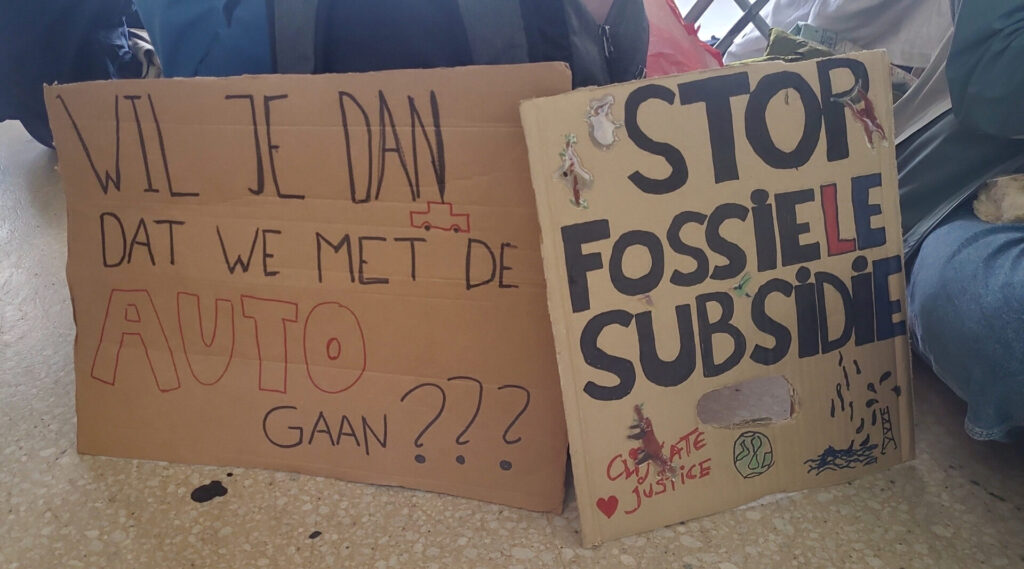 WIL JE DAN
DAT WE MET DE
AUTO
GAAN ???
STOP
FOSSiELE
SUBSiDiE
CLIMATE
JUSTICE